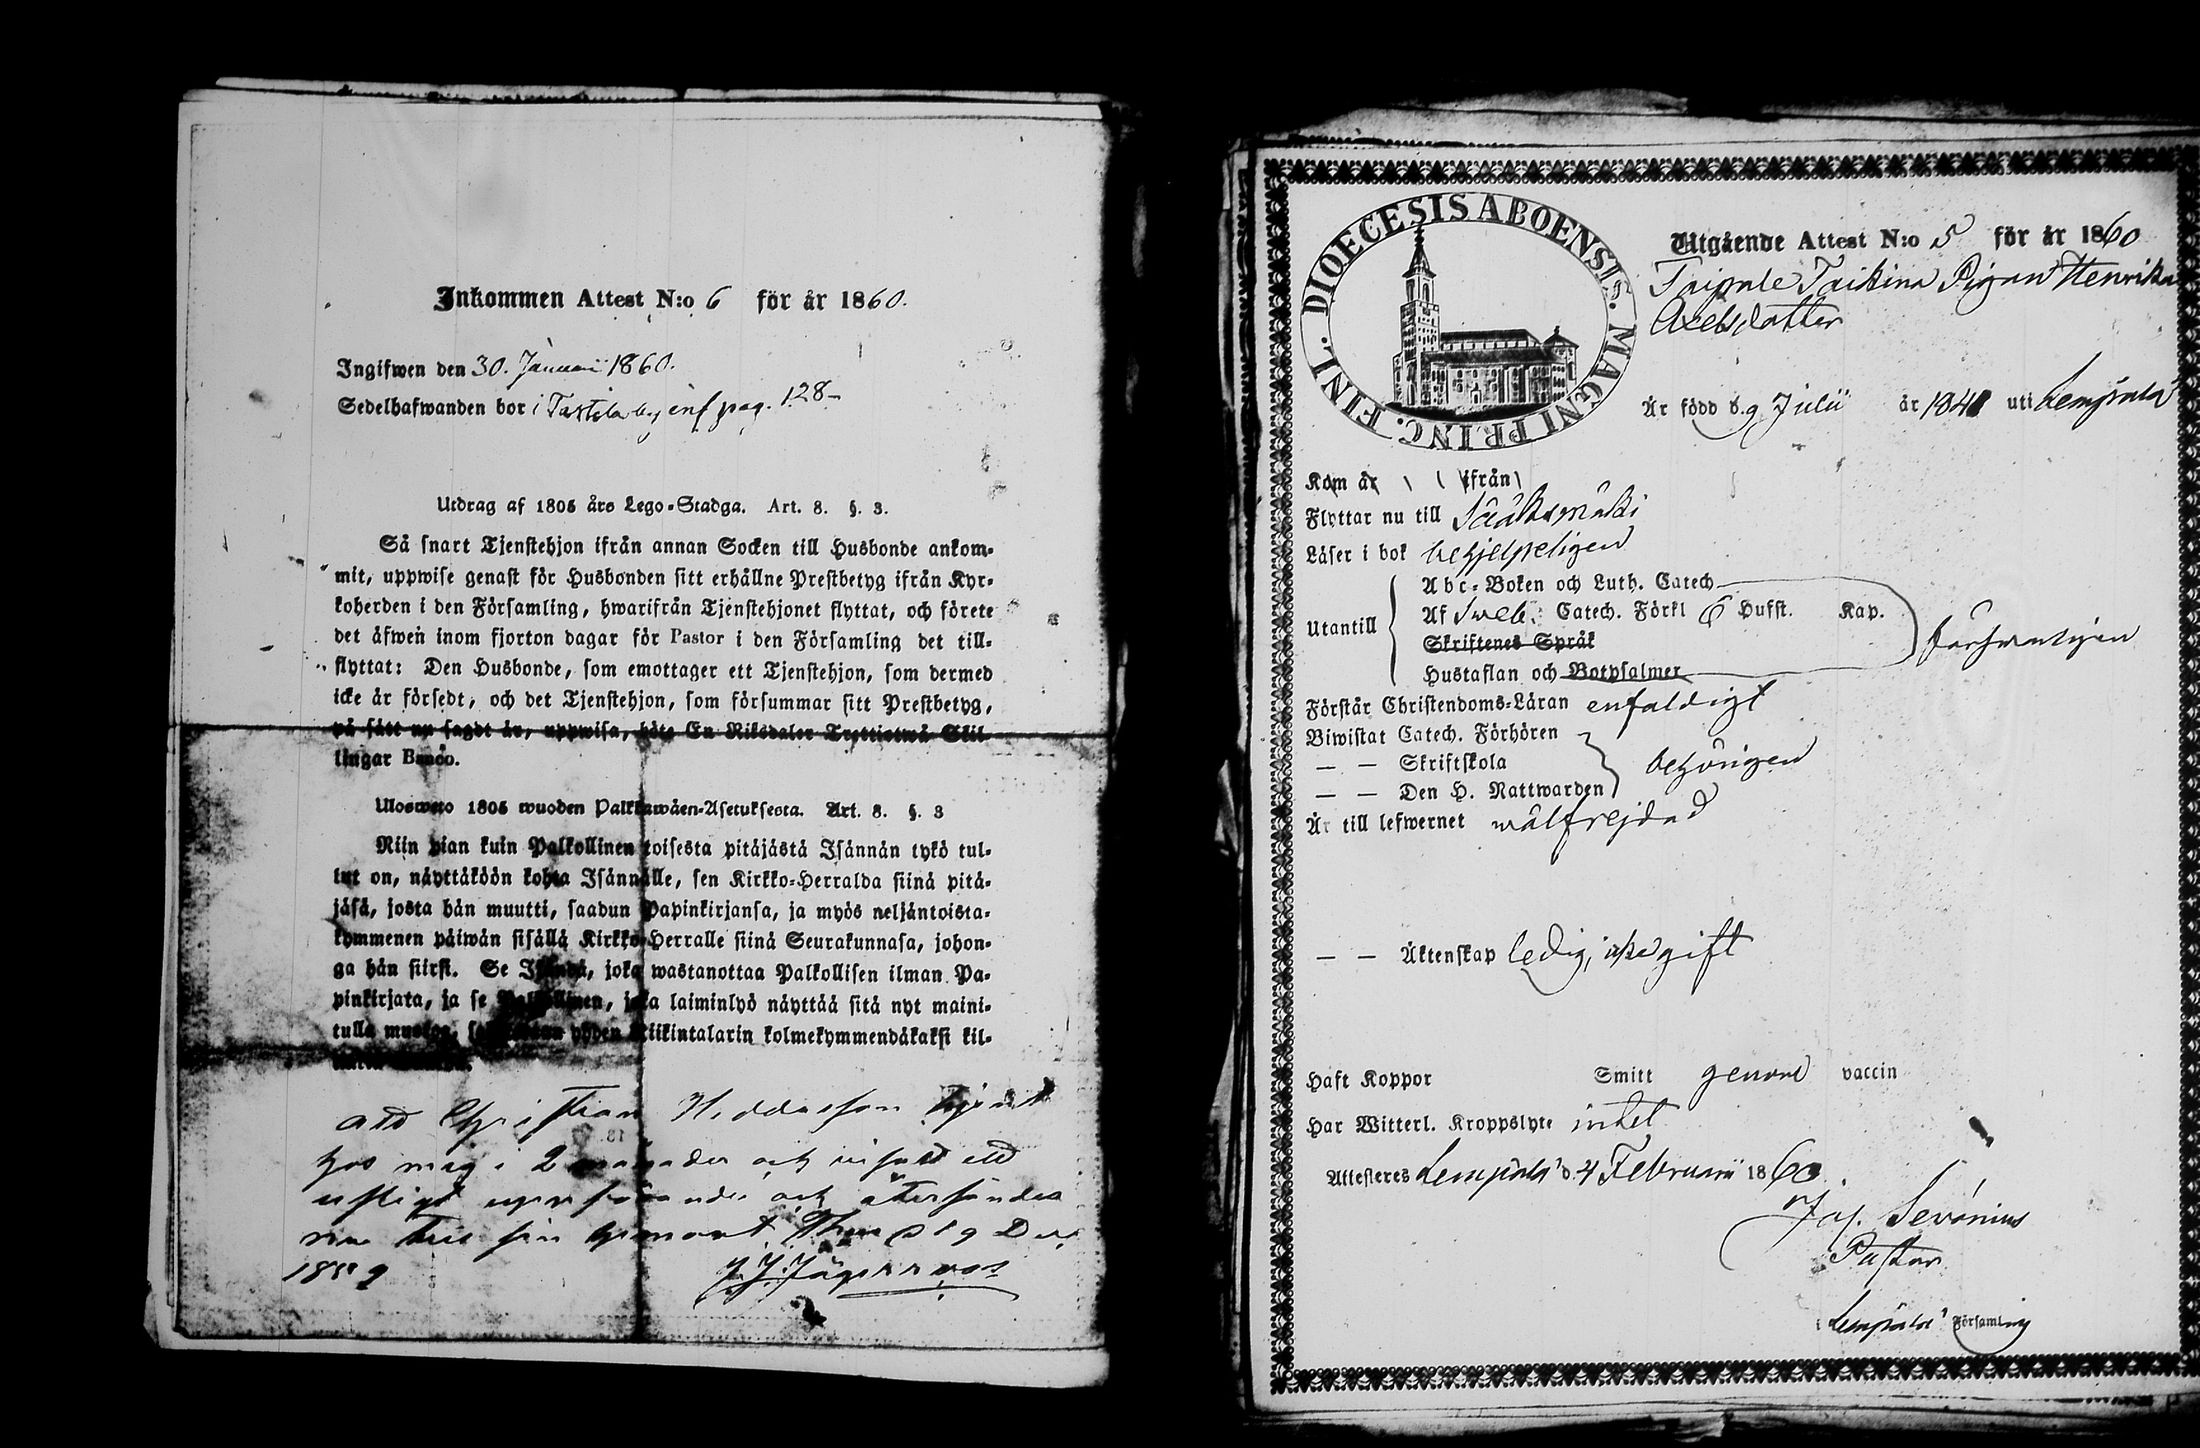 Inkommen Attest N:o 6 för år 1860.
Ingifwen den 30. Januarii 1860.
Sedelhafwanden bor i inf pag. 128-
Utdrag af 1805 års Lego-Stadga. Art. 8. §. 3.
Så snart Tjenstehjon ifrån annan Socken till Husbonde ankom-
mit, uppwise genast för Husbonden sitt erhållne Prestbetyg ifrån Kyr-
koherden i den Församling, hwarifrån Tjenstehjonet flyttat, och förete
det äfwen inom fjorton dagar för Pastor i den Församling det till-
flyttat: Den Husbonde, som emottager ett Tjenstehjon, som dermed
icke är försedt, och det Tjenstehjon, som försummar sitt Prestbetyg,
på sätt nu sagdt är, uppwisa, böte En Riksdaler Trettiotwå Skil-
lingar Banco.
Ulosweto 1805 wuoden Palkkawäen-Asetuksesta. Art. 8. §. 3
Niin pian kuin Palkollinen toisesta pitäjästä Isännän tykö tul-
lut on, näyttäköön kohta Isännälle, sen Kirkko-Herralda siinä pitä-
jäsä, josta hän muutti, saadun Papinkirjansa, ja myös neljäntoista-
kymmenen päiwän sisällä Kirkko-Herralle siinä Seurakunnasa, johon-
ga hän siirsi. Se Isändä, joka wastanottaa Palkollisen ilman Pa-
pinkirjata, ja se Palkollinen, joka laiminlyö näyttää sitä nyt maini-
tulla muotoa, yhden Riikintalarin kolmekymmendäkaksi kil-
att Christian tjent
hos mig i 2 månader och
och återsändes
1859
DIOECESIS ABOENSIS. MAGNI PRINC. FINL.
Utgående Attest N:o 5 för år 1860
Taipale Pigan Henrika
Axelsdotter
Är född d. 9 Julii år 1841 uti Lempälä
Kom år ifrån
Flyttar nu till Sääksmäki
Läser i bok behjelpeligen
Utantill
Abc-Boken och Luth. Catech
Af Sveb. Catech. Förkl 6 Hufst. Kap.
Skriftenes Språk
Hustaflan och Botpsalmer
försvarligen
Förstår Christendoms-Läran enfaldigt
Biwistat Catech. Förhören
— — Skriftskola
— — Den H. Nattwarden
behörigen
Är till lefwernet wälfrejdad
— — Äktenskap ledig, icke gift
Haft Koppor Smitt genom vaccin
Har Witterl. Kroppslyte intet
Attesteres Lempälä d. 4 Februarii 1860.
Jos. Sevonius
Pastor
i Lempälä Församling